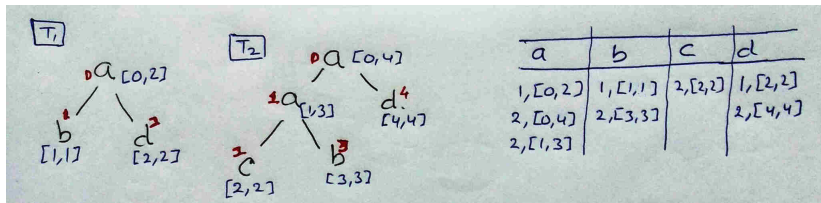 T1
0 a [0,2]
1 b [1,1]
2 d [2,2]
T2
0 a [0,4]
1 a [1,3]
4 d [4,4]
c [2,2]
3 b [3,3]
a b c d
1,[0,2] 1,[1,1] 2,[2,2] 1,[2,2]
2,[0,4] 2,[3,3] 2,[4,4]
2,[1,3]